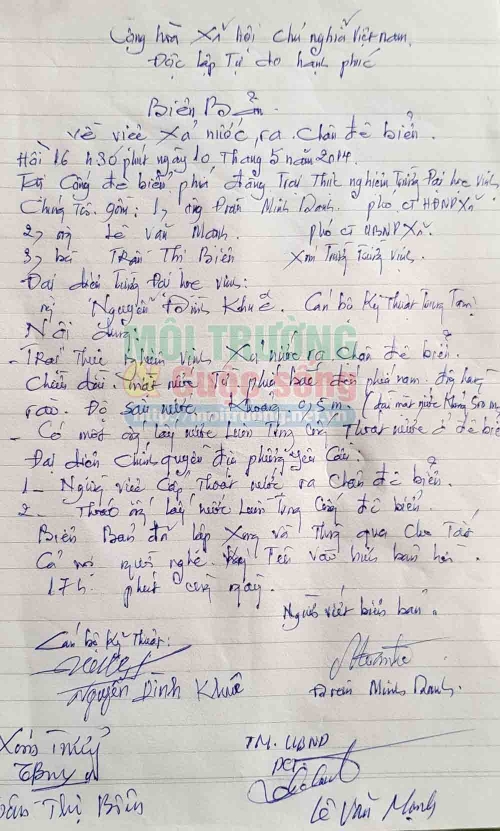 Cộng hòa Xã hội chủ nghĩa Việt nam
Độc lập Tự do hạnh phúc
Biên Bản
Về việc xả nước ra chân đê biển.
Hồi 16 h 30 phút ngày 10 tháng 5 năm 2014.
Tại Cống đê biển phía đằng Trại Thực nghiệm Trường Đại học Vinh
Chúng tôi gồm: 1, ông Trần Minh Danh. phó CT HĐND Xã
2, ông Lê Văn Mạnh phó CT UBND Xã.
3, bà Trần Thị Biên Xóm Trưởng
Đại diện trường Đại học Vinh:
Nguyễn Đình Khuê. Cán bộ kỹ thuật
Nội dung
MÔI TRƯỜNG
Cuộc sống
www.moitruong.net.vn
- Trại Thực nghiệm Vinh xả nước ra chân đê biển.
Chiều dài mặt nước từ phía bắc đến phía nam
rào. Độ sâu nước khoảng 0,5m. (dài mặt nước khoảng 500 m
- Có một ống lấy nước Luồn Trong Cống Thoát nước ở đê biển
Đại diện Chính quyền địa phương yêu cầu:
1 - Ngừng việc Cấp Thoát nước ra chân đê biển.
2 - Tháo ống lấy nước Luồn Trong Cống đê biển.
Biên Bản đã lập xong và Thông qua cho Tất
Cả mọi người nghe. Ký Tên vào biên bản hồi
17h phút cùng ngày.
Người viết biên bản.
Cán bộ kỹ thuật:
Nguyễn Đình Khuê
Trần Minh Danh.
Xóm
TM. UBND
PCT.
Trần Thị Biên
Lê Văn Mạnh